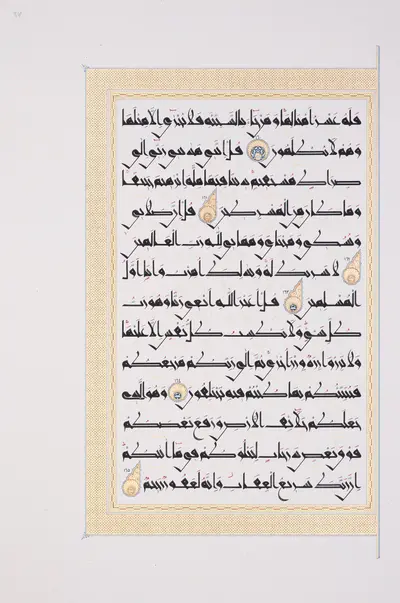 فله عشر أمثالها ومن جاء بالسيئة فلا يجزى إلا مثلها
وهم لا يظلمون ١٦٠ قل إنني هداني ربي إلى
صراط مستقيم دينا قيما ملة إبراهيم حنيفا
وما كان من المشركين ١٦١ قل إن صلاتي
ونسكي ومحياي ومماتي لله رب العالمين
١٦٢ لا شريك له وبذلك أمرت وأنا أول
المسلمين ١٦٣ قل أغير الله أبغي ربا وهو رب
كل شيء ولا تكسب كل نفس إلا عليها
ولا تزر وازرة وزر أخرى ثم إلى ربكم مرجعكم
فينبئكم بما كنتم فيه تختلفون ١٦٤ وهو الذي
جعلكم خلائف الأرض ورفع بعضكم
فوق بعض درجات ليبلوكم في ما آتاكم
إن ربك سريع العقاب وإنه لغفور رحيم ١٦٥